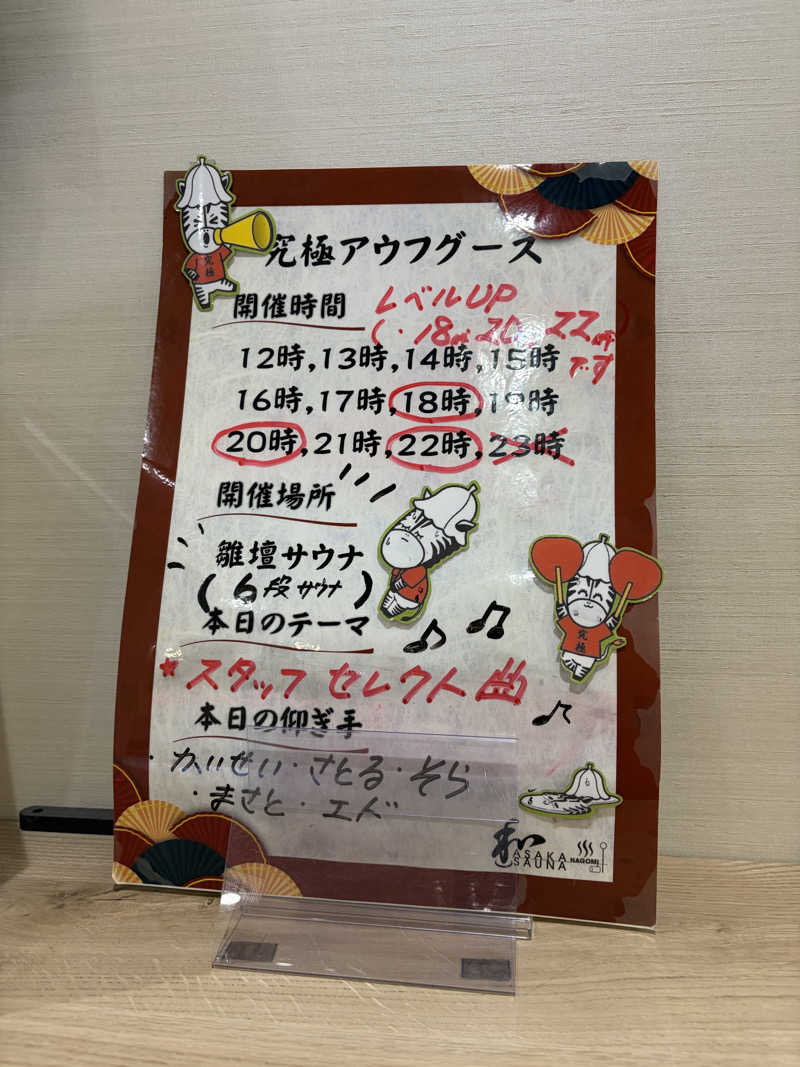 究極アウフグース
開催時間
レベルUP
(・18時 20時 22時)
です
12時,13時,14時,15時
16時,17時,18時,19時
20時,21時,22時,23時
開催場所
雛壇サウナ
(6段サウナ)
本日のテーマ
*スタッフ セレクト曲
本日の仰ぎ手
・かいせい・さとる・そら
・まさと・エド
和 ASAKA SAUNA NAGOMI
究極
究極